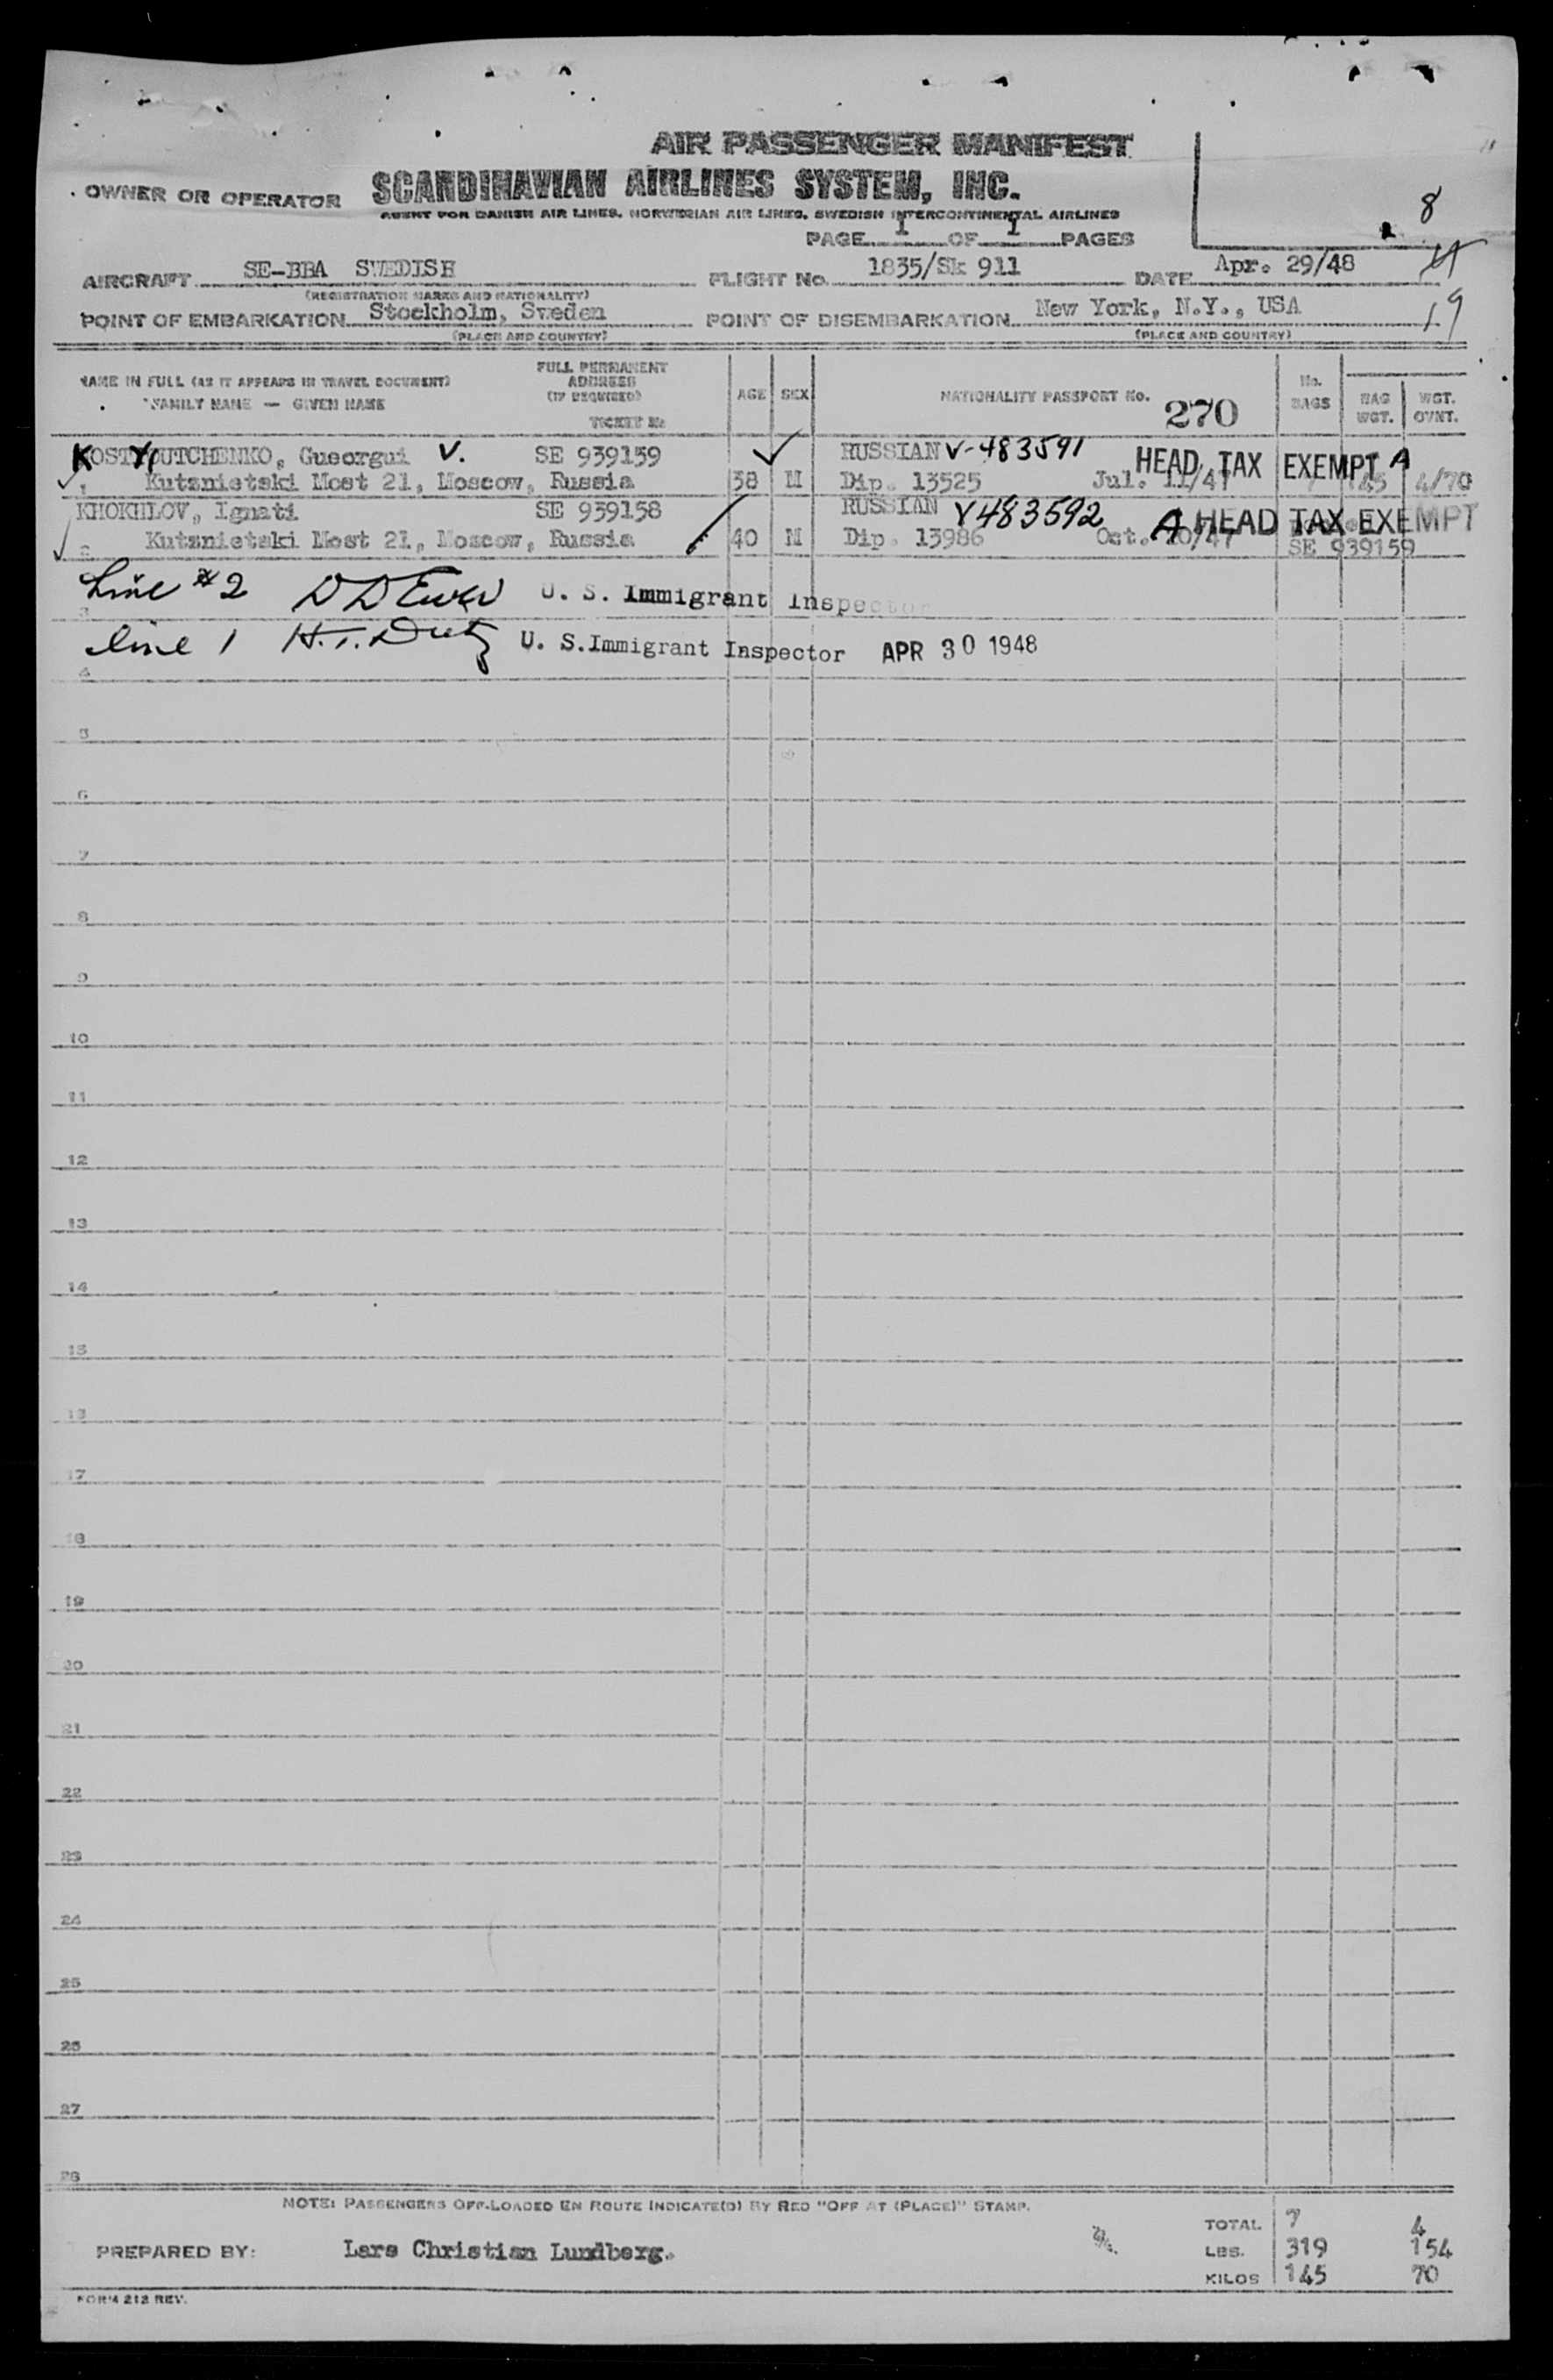 AIR PASSENGER MANIFEST
OWNER OR OPERATOR SCANDINAVIAN AIRLINES SYSTEM, INC.
AGENT FOR DANISH AIR LINES, NORWEGIAN AIR LINES, SWEDISH INTERCONTINENTAL AIRLINES
8
PAGE 1 OF 1 PAGES
AIRCRAFT SE-BBA SWEDISH FLIGHT No. 1835/Sk 911 DATE Apr. 29/48
(REGISTRATION MARKS AND NATIONALITY)
POINT OF EMBARKATION Stockholm, Sweden POINT OF DISEMBARKATION New York, N.Y., USA 19
(PLACE AND COUNTRY) (PLACE AND COUNTRY)
NAME IN FULL (AS IT APPEARS IN TRAVEL DOCUMENT) FULL PERMANENT ADDRESS (IF REQUIRED) AGE SEX NATIONALITY PASSPORT No. 270 No. BAGS BAG WGT. WGT. OVNT.
FAMILY NAME — GIVEN NAME TICKET No
KOSTYOUTCHENKO, Gueorgui V. SE 939159 RUSSIAN V-483591 HEAD TAX EXEMPT A
1 Kutznietski Most 21, Moscow, Russia 38 M Dip. 13525 Jul. 11/47 4/70
KHOKHLOV, Ignati SE 939158 RUSSIAN V483592 A HEAD TAX EXEMPT
2 Kutznietski Most 21, Moscow, Russia 40 M Dip. 13986 Oct. SE 939159
Line #2 U. S. Immigrant Inspector
3
Line 1 U. S. Immigrant Inspector APR 30 1948
4
5
6
7
8
9
10
11
12
13
14
15
16
17
18
19
20
21
22
23
24
25
26
27
28
NOTE: PASSENGERS OFF-LOADED EN ROUTE INDICATE(D) BY RED "OFF AT (PLACE)" STAMP.
TOTAL 7 4
PREPARED BY: Lars Christian Lundberg. LBS. 319 154
KILOS 145 70
FORM 212 REV.